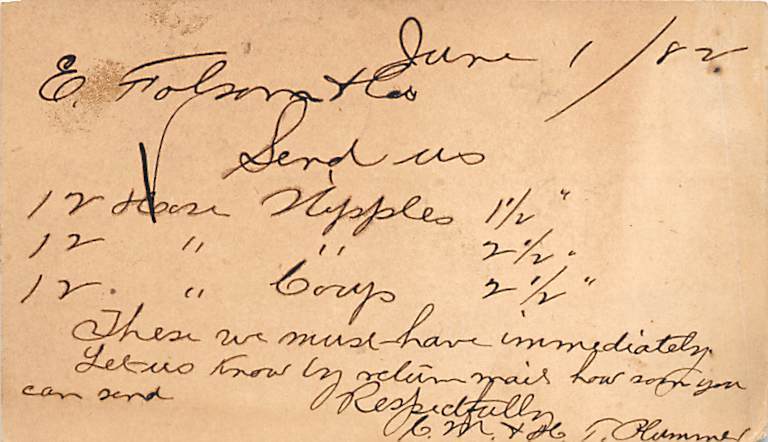 June 1/82
E. Folsom & Co
Send us
12 Hose Nipples 1 1/2 "
12 " " 2 1/2 "
12 " Coups 2 1/2 "
These we must have immediately
Let us know by return mail how soon you
can send
Respectfully
C. M. & H. T. Plummer